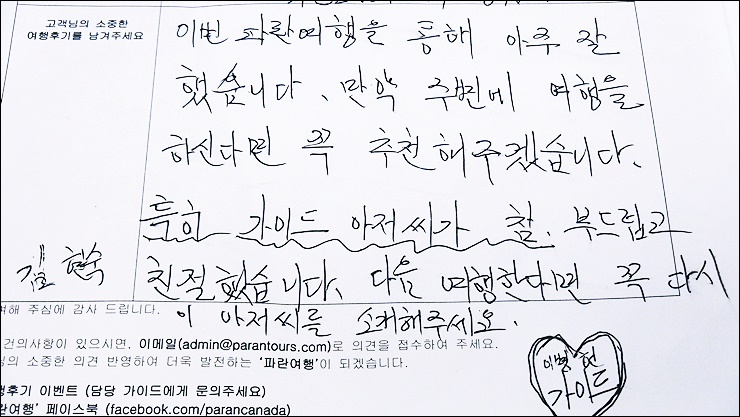 고객님의 소중한
여행후기를 남겨주세요
이번 파란여행을 통해 아주 잘
했습니다. 만약 주변에 여행을
하신다면 꼭 추천해주겠습니다.
특히 가이드 아저씨가 참. 부드럽고
친절했습니다. 다음 여행한다면 꼭 다시
이 아저씨를 소개해주세요.
김현숙
여해 주심에 감사 드립니다.
건의사항이 있으시면, 이메일(admin@parantours.com)로 의견을 접수하여 주세요.
님의 소중한 의견 반영하여 더욱 발전하는 '파란여행'이 되겠습니다.
이병헌
가이드
행후기 이벤트 (담당 가이드에게 문의주세요)
란여행' 페이스북 (facebook.com/parancanada)